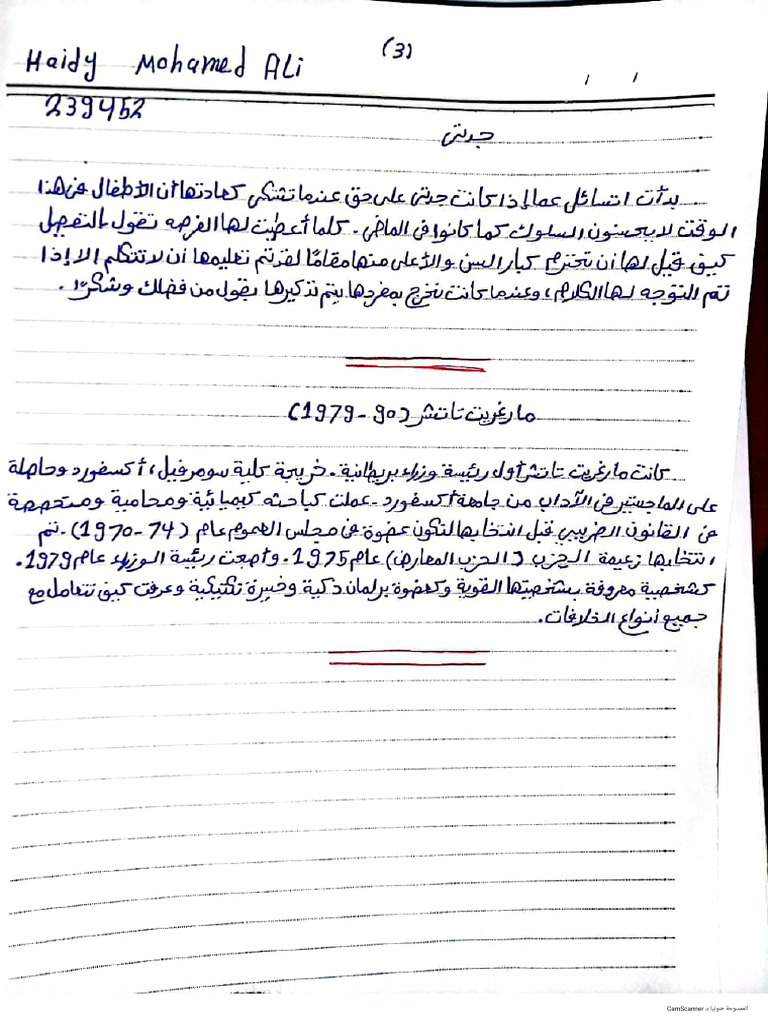 (3)
Haidy Mohamed Ali
/ /
239452
جدتى
بدأت اتسائل عما إذا كانت جدتى على حق عندما تشتكى كعادتها أن الأطفال فى هذا
الوقت لا يحسنون السلوك كما كانوا فى الماضى. كلما أعطيت لها الفرصه تقول بالتفصيل
كيف قيل لها أن تحترم كبار السن والأعلى منها مقامًا لقد تم تعليمها أن لا تتكلم الا إذا
تم التوجه لها الكلام، وعندما كانت تخرج بمفردها يتم تذكيرها بقول من فضلك وشكرًا.
مارغريت تاتشر (90 - 1979)
كانت مارغريت تاتشر أول رئيسة وزراء بريطانية. خريجة كلية سومرفيل، أكسفورد وحاصلة
على الماجستير فى الأداب من جامعة أكسفورد. عملت كباحثه كيميائية ومحامية ومتخصصة
فى القانون الضريبي قبل انتخابها لتكون عضوة فى مجلس العموم عام (74 - 1970). تم
انتخابها زعيمة الحزب (الحزب المعارض) عام 1975. وأصبحت رئيسة الوزراء عام 1979.
كشخصية معروفة بشخصيتها القوية وكعضوة برلمان ذكية وخبيرة تكتيكية وعرفت كيف تتعامل مع
جميع أنواع الخلافات.
الممسوحة ضوئيا بـ CamScanner